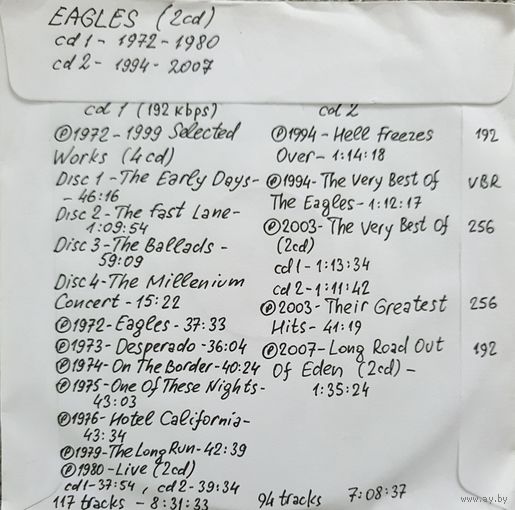 EAGLES (2cd)
cd 1 - 1972 - 1980
cd 2 - 1994 - 2007
cd 1 (192 kbps)
Ⓟ1972 - 1999 Selected
Works (4cd)
Disc 1 - The Early Days -
- 46:16
Disc 2 - The Fast Lane -
1:09:54
Disc 3 - The Ballads -
59:09
Disc 4 - The Millenium
Concert - 15:22
Ⓟ1972 - Eagles - 37:33
Ⓟ1973 - Desperado - 36:04
Ⓟ1974 - On The Border - 40:24
Ⓟ1975 - One Of These Nights -
43:03
Ⓟ1976 - Hotel California -
43:34
Ⓟ1979 - The Long Run - 42:39
Ⓟ1980 - Live (2cd)
cd 1 - 37:54, cd 2 - 39:34
117 tracks - 8:31:33
cd 2
Ⓟ1994 - Hell Freezes 192
Over - 1:14:18
Ⓟ1994 - The Very Best Of VBR
The Eagles - 1:12:17
Ⓟ2003 - The Very Best Of 256
(2cd)
cd 1 - 1:13:34
cd 2 - 1:11:42
Ⓟ2003 - Their Greatest 256
Hits - 41:19
Ⓟ2007 - Long Road Out 192
Of Eden (2cd) -
1:35:24
94 tracks 7:08:37
www.ay.by